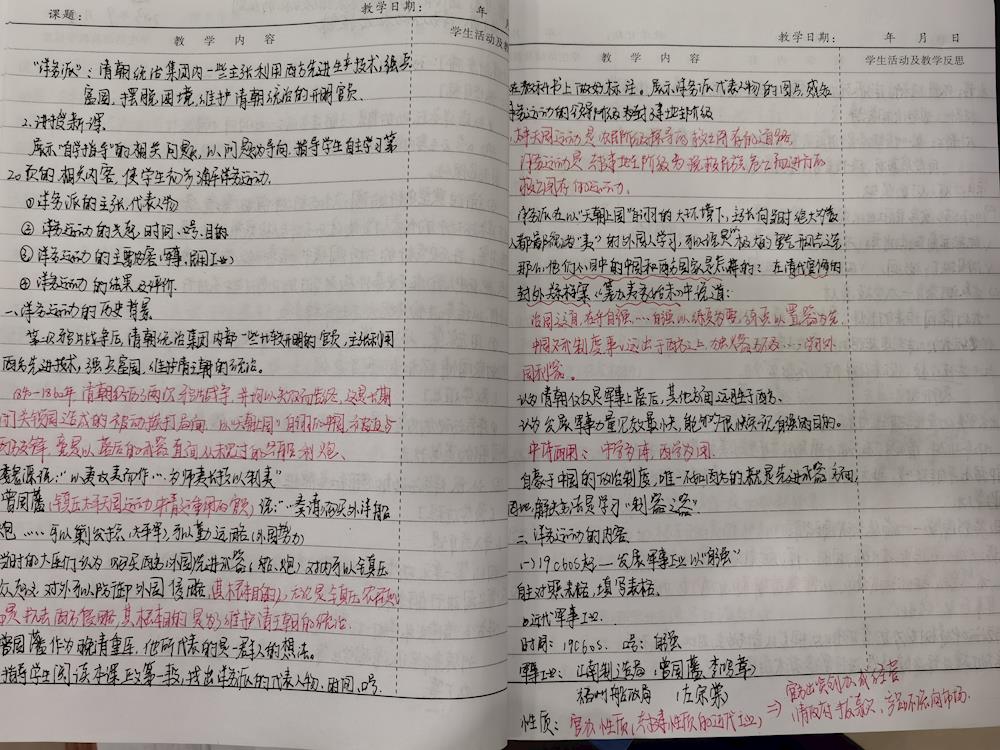 课题：
教学日期： 年 月
教 学 内 容 学生活动及教
"洋务派"：清朝统治集团内一些主张利用西方先进生产技术，强兵
富国，摆脱困境，维护清朝统治的开明官员、
2.讲授新课
展示"自学指导"的相关问题，以问题为导向，指导学生自主学习第
20页的相关内容，使学生初步了解洋务运动。
①洋务派的主张、代表人物
②洋务运动的兴起，时间、口号、目的
③洋务运动的主要内容（军事、民用工业）
④洋务运动的结果及评价.
一、洋务运动的历史背景
第二次鸦片战争后，清朝统治集团内部一些比较开明的官员，主张利用
西方先进技术，强兵富国，维护清王朝的统治。
1840-1860年清朝经历了两次鸦片战争，并均以失败而告终，这是长期
闭关锁国造成的被动挨打局面，以"天朝上国"自诩的中国
魏源语："以夷攻夷而作……为师夷长技以制夷"
曾国藩（镇压太平天国运动中清军将领的官员）语："……购买外洋船
炮……可以剿发捻（太平军），可以勤远略（外国势力）
当时的大臣们认为购买西方外国先进武器（船、炮）对内可以镇压
对外可以防御外国侵略，其根本目的，无论是镇压农民起
抗击西方侵略，其根本目的是为了维护清王朝的统治
曾国藩作为晚清重臣，他所代表的是一群人的想法。
指导学生阅读本课正文第一段，找出洋务派的代表人物、时间、口号.
教学日期： 年 月 日
教 学 内 容 学生活动及教学反思
在教科书上做好标注。展示洋务派代表人物的图片，感知
洋务运动的领导阶级相对封建地主阶级
太平天国运动是农民阶级探寻的救亡图存的道路
洋务运动是封建地主阶级为挽救民族危亡而进行的
救亡图存的运动.
洋务派在以"天朝上国"自诩的大环境下，主张向当时绝大多数
人都鄙视为"夷"的外国人学习，可以说是极大的勇气和创造
那么，他们心目中的中国和西方国家是怎样的？在清代官修的
对外关系档案《筹办夷务始末》中谈道：
治国之道，在乎自强……自强以练兵为要，练兵又以置器为先.
中国文武制度，事事远出于西人之上，独火器不及……学外
国利器。
认为清朝仅仅是军事上落后，其他方面远胜于西方.
认为发展军事力量见效最快，能够很快实现自强的目的。
中体西用：中学为体，西学为用.
自豪于中国的政治制度，唯一不如西方的就是先进武器方面，
因此解决方法是学习"制器之器"
二、洋务运动的内容
(一)19C60s起——发展军事工业以"自强"
自主对照表格，填写表格.
1.近代军事工业.
时间：19C60s. 口号：自强
军事工业：江南制造局（曾国藩、李鸿章）
福州船政局（左宗棠）
性质：官办性质（封建性质的近代工业）⇒ 官方出资创办或经营
清政府手投资，产品不流向市场.